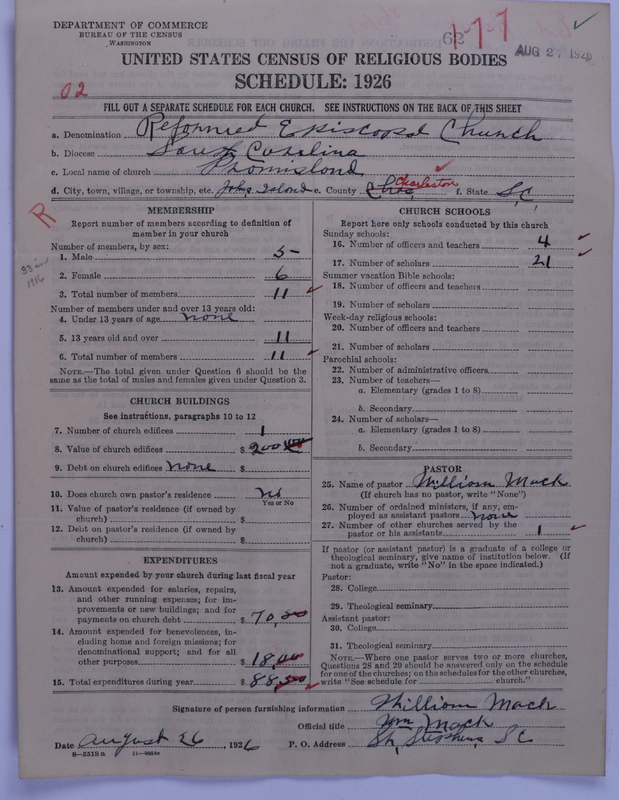 DEPARTMENT OF COMMERCE
BUREAU OF THE CENSUS
WASHINGTON
62
1-7-7
AUG 2 1926
UNITED STATES CENSUS OF RELIGIOUS BODIES
SCHEDULE: 1926
02
FILL OUT A SEPARATE SCHEDULE FOR EACH CHURCH. SEE INSTRUCTIONS ON THE BACK OF THIS SHEET
a. Denomination Reformed Episcopal Church
b. Diocese South Carolina
c. Local name of church
d. City, town, village, or township, etc. Johs Island e. County Chas. Charleston f. State S.C.
R
MEMBERSHIP
Report number of members according to definition of member in your church
Number of members, by sex:
1. Male 5
2. Female 6
3. Total number of members 11
33 in 1916
Number of members under and over 13 years old:
4. Under 13 years of age none
5. 13 years old and over 11
6. Total number of members 11
NOTE.—The total given under Question 6 should be the
same as the total of males and females given under Question 3.
CHURCH BUILDINGS
See instructions, paragraphs 10 to 12
7. Number of church edifices 1
8. Value of church edifices $ 200
9. Debt on church edifices none $
10. Does church own pastor's residence no
Yes or No
11. Value of pastor's residence (if owned by
church) $
12. Debt on pastor's residence (if owned by
church) $
EXPENDITURES
Amount expended by your church during last fiscal year
13. Amount expended for salaries, repairs,
and other running expenses; for im-
provements or new buildings; and for
payments on church debt $ 70.00
14. Amount expended for benevolences, in-
cluding home and foreign missions; for
denominational support; and for all
other purposes $ 18.00
15. Total expenditures during year $ 88.00
CHURCH SCHOOLS
Report here only schools conducted by this church
Sunday schools:
16. Number of officers and teachers 4
17. Number of scholars 21
Summer vacation Bible schools:
18. Number of officers and teachers
19. Number of scholars
Week-day religious schools:
20. Number of officers and teachers
21. Number of scholars
Parochial schools:
22. Number of administrative officers
23. Number of teachers—
a. Elementary (grades 1 to 8)
b. Secondary
24. Number of scholars—
a. Elementary (grades 1 to 8)
b. Secondary
PASTOR
25. Name of pastor William Mack
(If church has no pastor, write "None")
26. Number of ordained ministers, if any, em-
ployed as assistant pastors none
27. Number of other churches served by the
pastor or his assistants 1
If pastor (or assistant pastor) is a graduate of a college or
theological seminary, give name of institution below. (If
not a graduate, write "No" in the space indicated.)
Pastor:
28. College
29. Theological seminary
Assistant pastor:
30. College
31. Theological seminary
NOTE.—Where one pastor serves two or more churches,
Questions 28 and 29 should be answered only on the schedule
for one of the churches; on the schedules for the other churches,
write "See schedule for church."
Signature of person furnishing information William Mack
Official title Wm Mack
Date August 26 1926 P. O. Address St, Stephens, S C
8—5518 a